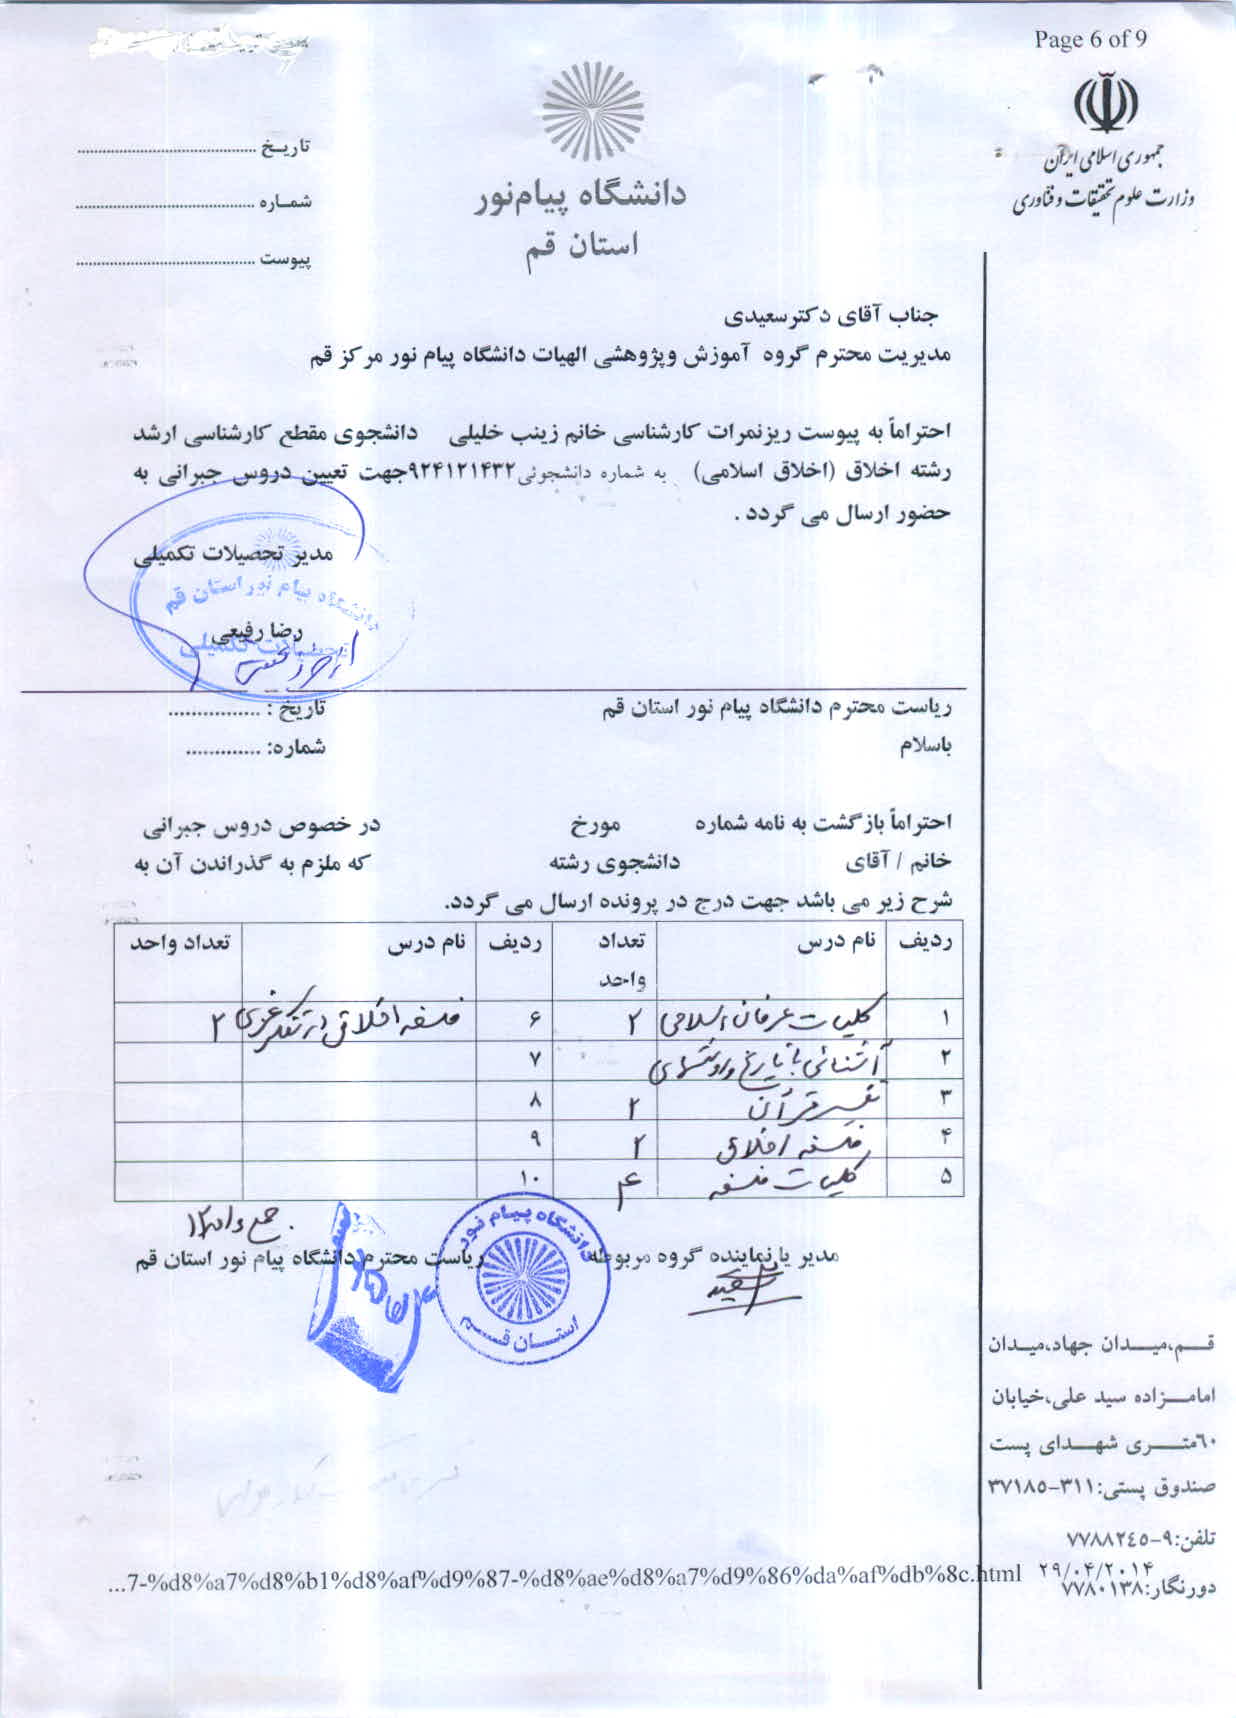 Page 6 of 9
جمهوری اسلامی ایران
وزارت علوم تحقیقات و فناوری
دانشگاه پیام‌نور
استان قم
تاریـخ ....................................
شمـاره ....................................
پیوست ....................................
جناب آقای دکترسعیدی
مدیریت محترم گروه آموزش وپژوهشی الهیات دانشگاه پیام نور مرکز قم
احتراماً به پیوست ریزنمرات کارشناسی خانم زینب خلیلی دانشجوی مقطع کارشناسی ارشد
رشته اخلاق (اخلاق اسلامی) به شماره دانشجوئی ۹۲۴۱۲۱۴۳۲جهت تعیین دروس جبرانی به
حضور ارسال می گردد .
مدیر تحصیلات تکمیلی
دانشگاه پیام نور استان قم
رضا رفیعی
تحصیلات تکمیلی
ریاست محترم دانشگاه پیام نور استان قم
تاریخ : ................
باسلام
شماره: .............
احتراماً بازگشت به نامه شماره مورخ در خصوص دروس جبرانی
خانم / آقای دانشجوی رشته که ملزم به گذراندن آن به
شرح زیر می باشد جهت درج در پرونده ارسال می گردد.
ردیف نام درس تعداد واحد ردیف نام درس تعداد واحد
۱ کلیات عرفان اسلامی ۲ ۶ فلسفه اخلاق در تفکر غرب ۲
۲ آشنائی با تاریخ و ۷
۳ تفسیر قرآن ۲ ۸
۴ فلسفه اخلاق ۲ ۹
۵ کلیات فلسفه ۴ ۱۰
جمع واحد ۱۲
مدیر یا نماینده گروه مربوطه ریاست محترم دانشگاه پیام نور استان قم
دانشگاه پیـام نور
استـان قـم
قـم،میـدان جهاد،میـدان
امامـزاده سید علی،خیابان
۶۰متـری شهـدای پست
صندوق پستی:۳۱۱-۳۷۱۸۵
تلفن:۹-۷۷۸۸۲٤۵
دورنگار:۷۷۸۰۱۳۸
...7-%d8%a7%d8%b1%d8%af%d9%87-%d8%ae%d8%a7%d9%86%da%af%db%8c.html ۲۹/۰۴/۲۰۱۴